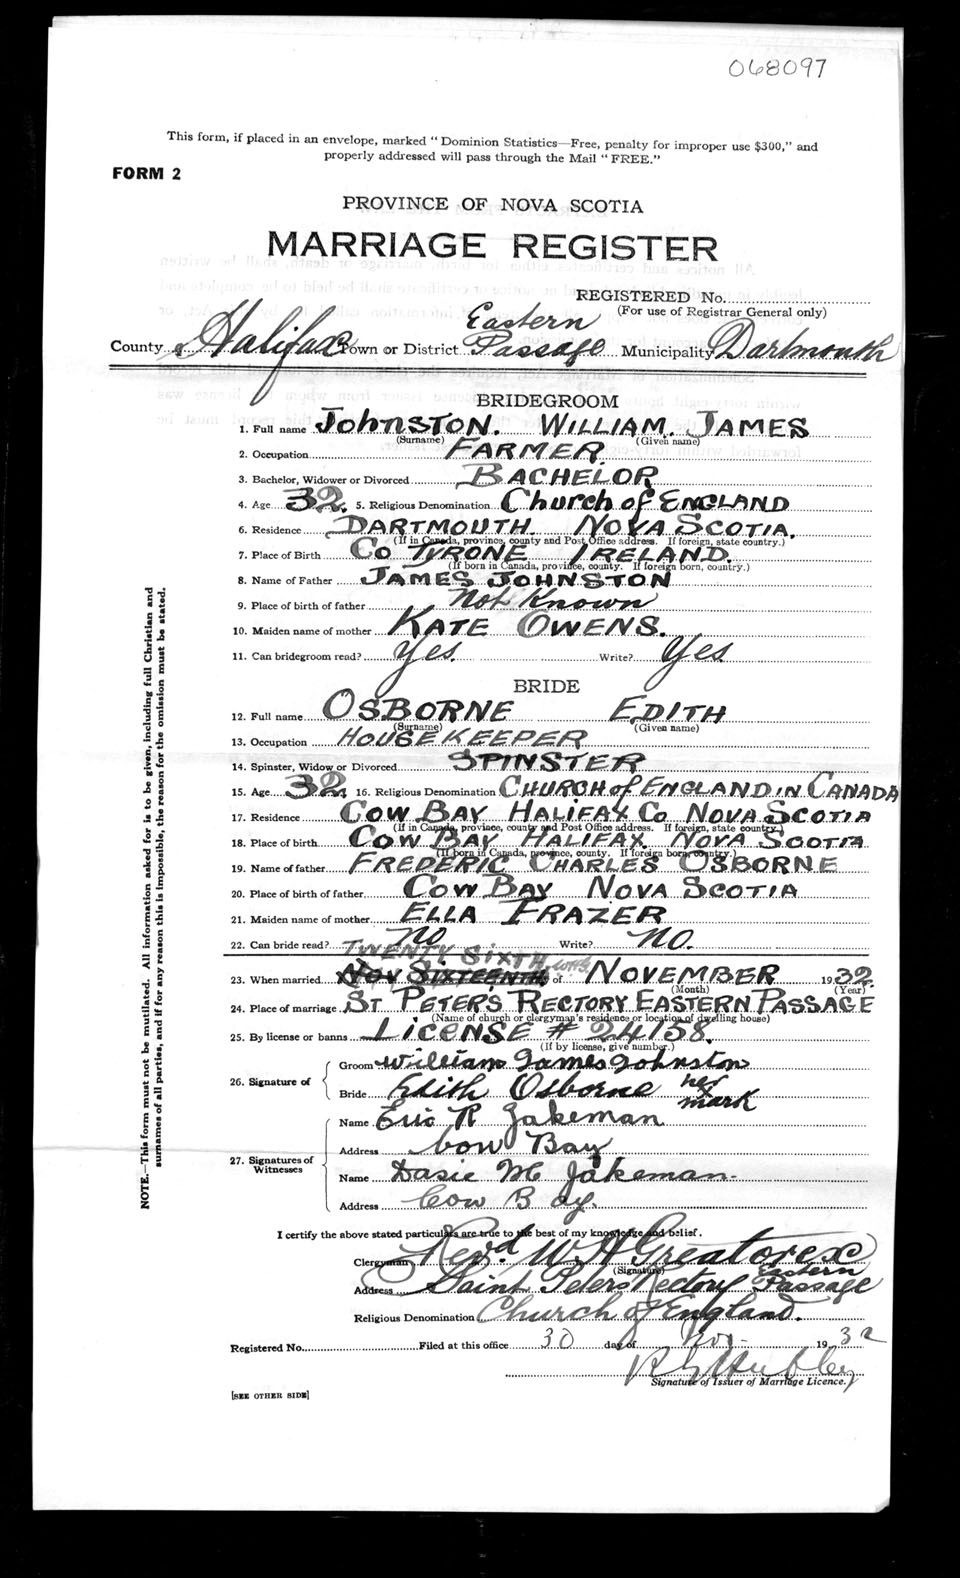 068097
This form, if placed in an envelope, marked "Dominion Statistics—Free, penalty for improper use $300," and
properly addressed will pass through the Mail "FREE."
FORM 2
PROVINCE OF NOVA SCOTIA
MARRIAGE REGISTER
REGISTERED No.
(For use of Registrar General only)
County of Halifax Town or District Eastern Passage Municipality Dartmouth
BRIDEGROOM
1. Full name JOHNSTON. WILLIAM. JAMES
(Surname) (Given name)
2. Occupation FARMER.
3. Bachelor, Widower or Divorced BACHELOR
4. Age 32. 5. Religious Denomination Church of ENGLAND
6. Residence DARTMOUTH NOVA SCOTIA.
(If in Canada, province, county and Post Office address. If foreign, state country.)
7. Place of Birth Co TYRONE IRELAND.
(If born in Canada, province, county. If foreign born, country.)
8. Name of Father JAMES JOHNSTON
9. Place of birth of father Not Known
10. Maiden name of mother KATE OWENS.
11. Can bridegroom read? Yes. Write? Yes
BRIDE
12. Full name OSBORNE EDITH
(Surname) (Given name)
13. Occupation HOUSEKEEPER
14. Spinster, Widow or Divorced SPINSTER
15. Age 32 16. Religious Denomination CHURCH of ENGLAND IN CANADA
17. Residence COW BAY HALIFAX Co NOVA SCOTIA
(If in Canada, province, county and Post Office address. If foreign, state country.)
18. Place of birth COW BAY HALIFAX NOVA SCOTIA
(If born in Canada, province, county. If foreign born, country.)
19. Name of father FREDERIC CHARLES OSBORNE
20. Place of birth of father COW BAY NOVA SCOTIA
21. Maiden name of mother ELLA FRAZER
22. Can bride read? NO Write? NO.
TWENTY SIXTH WHG.
23. When married Nov SIXTEENTH of NOVEMBER 1932
(Month) (Year)
24. Place of marriage ST PETERS RECTORY EASTERN PASSAGE
(Name of church or clergyman's residence or location of dwelling house)
25. By license or banns LICENSE # 24758.
(If by license, give number.)
26. Signature of
Groom William James Johnston
Bride Edith Osborne her x mark
27. Signatures of Witnesses
Name Eric R Jakeman
Address Cow Bay
Name Dasie M Jakeman.
Address Cow Bay.
I certify the above stated particulars are true to the best of my knowledge and belief.
Clergyman Revd. W. H Greatorex
(Signature)
Address Saint Peters Rectory Eastern Passage
Religious Denomination Church of England.
Registered No. Filed at this office 30 day of Nov. 1932
Signature of Issuer of Marriage Licence.
[SEE OTHER SIDE]
NOTE.—This form must not be mutilated. All information asked for is to be given, including full Christian and
surnames of all parties, and if for any reason this is impossible, the reason for the omission must be stated.